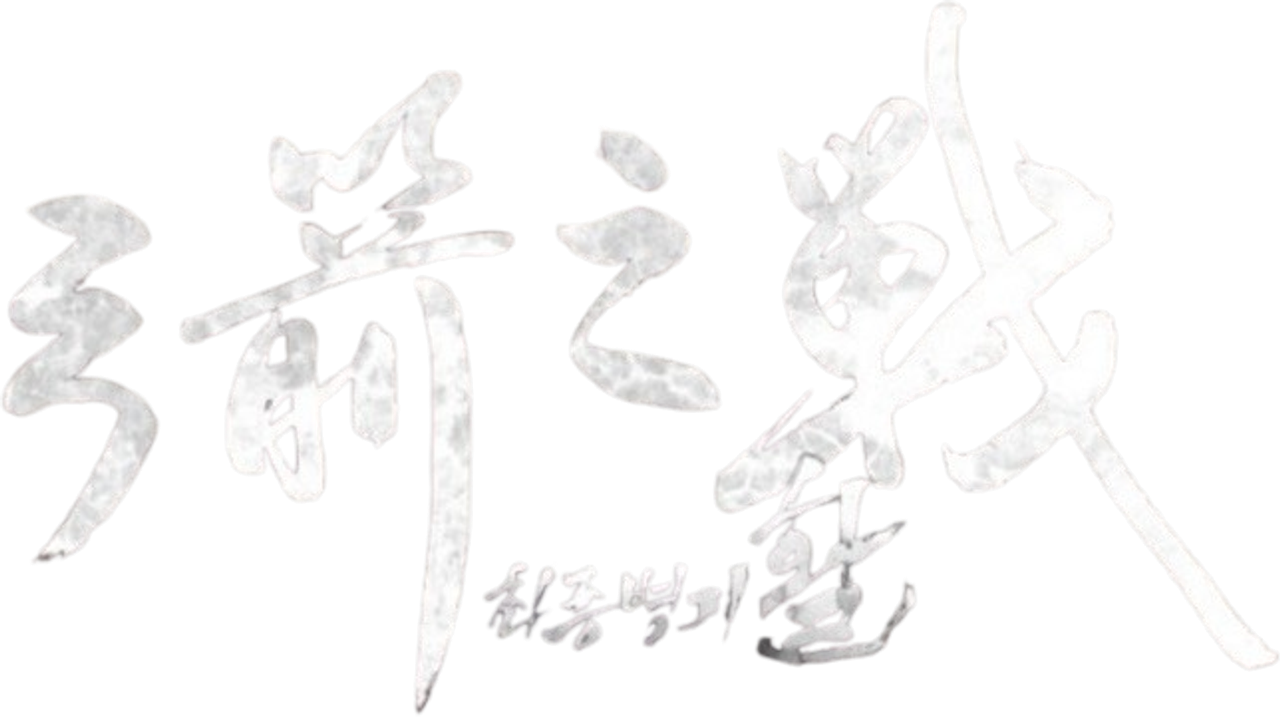 弓箭之戰
최종병기 활